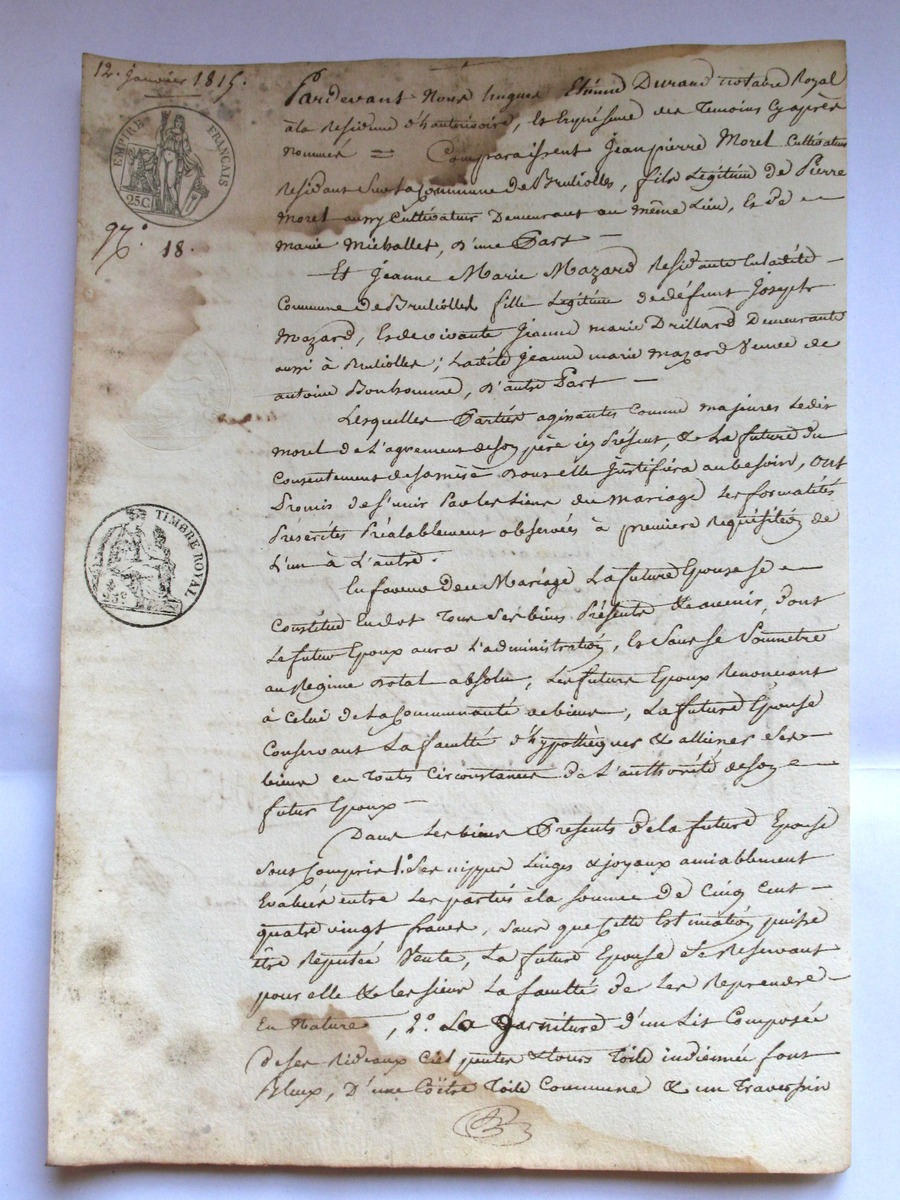 12. janvier 1815.
EMPIRE FRANÇAIS
25 C.
N.° 18.
TIMBRE ROYAL
25.c
Pardevant Nous hugues Etienne Durand notaire Royal
à la Residence d'hauterivoire, Et En présence des Temoins Cy après
nommés = Comparaissent Jean pierre Morel Cultivateur
Residant Sur la Commune de Bruliolles, fils Legitime de Pierre
Morel aussy Cultivateur Demeurant au même Lieu, Et de
marie Michallet, d'une Part —
Et Jeanne Marie Mazard Residante En ladite
Commune de Bruliolles fille Legitime de défunt Joseph
Mazard, Et de vivante Jeanne marie Drillard Demeurante
aussi à Brulliolles; Ladite Jeanne marie mazard Veuve de
antoine Bonhomme, d'autre Part —
Lesquelles Parties agissantes Comme majeures Ledit
morel de L'agrement de Son père icy Présent, & La future du
Consentement de sa mère dont elle Justifiera au besoin, Ont
Promis de S'unir Par les Liens du Mariage Les formalités
Préscrites Préalablement observées à premiere Requisition de
L'un à L'autre.
En faveur de ce Mariage La future Epouse se
Constitue En dot Tous Ses biens Présents & avenir, dont
Le futur Epoux aura L'administration, Et Sans se Soumettre
au Regime dotal absolu, Les futurs Epoux Renoncent
à Celui de la Communauté de biens, La future Epouse
Conservant La faculté d'hypothèquer & aliener Ses
biens en Toutes Circonstances de L'authorité de Son
futur Epoux —
Dans Les biens Presents de la future Epouse
Sont Compris 1.° Ses nippes Linges & joyaux amiablement
Evalués entre Les parties à la somme de Cinq Cent
quatre vingt francs, Sans que Cette Estimation puisse
être Reputée Vente, La future Epouse Se Reservant
pour elle & les siens La faculté de Les Reprendre
En Nature, 2.° La garniture d'un Lit Composée
de Ses Rideaux Ciel pentes & tours Toile indienne font
Bleux, D'une Coëtre Toile Commune & un Traversin